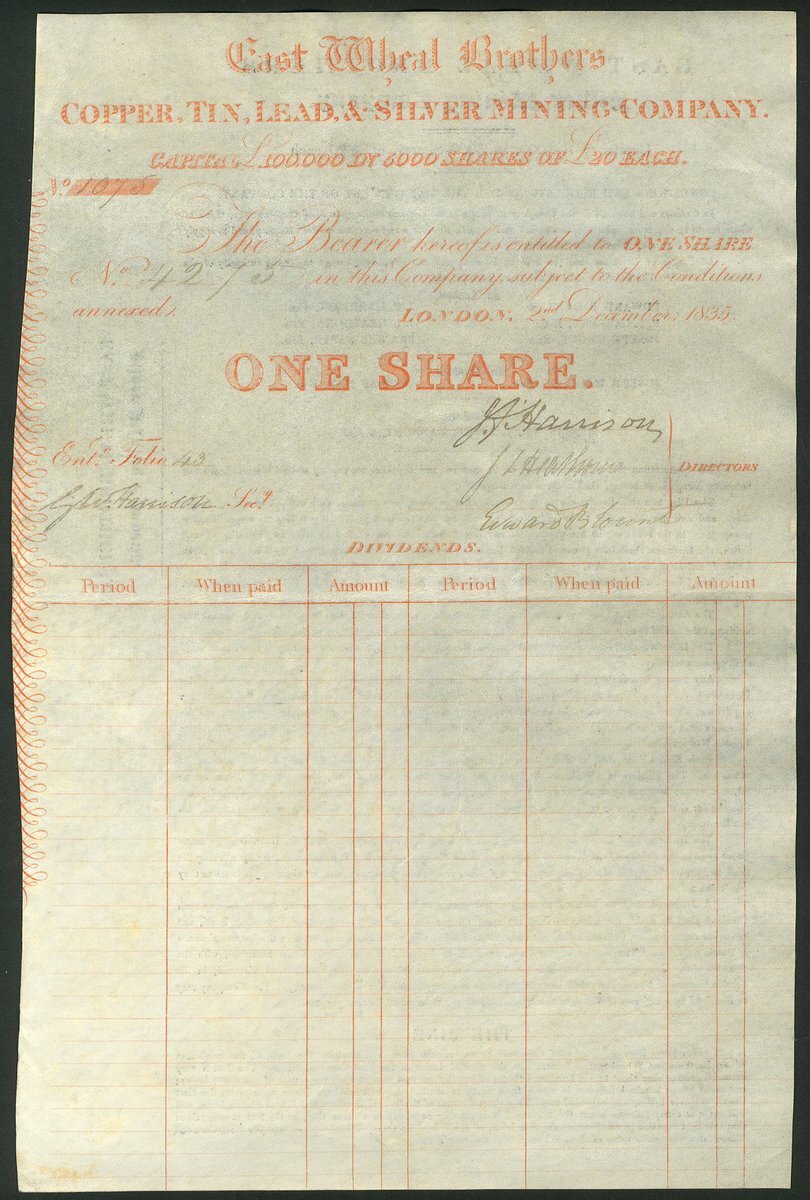 East Wheal Brothers
COPPER, TIN, LEAD, & SILVER MINING COMPANY.
CAPITAL £100,000 IN 5000 SHARES OF £20 EACH.
No. 1075
The Bearer hereof is entitled to ONE SHARE
No. 4275 in this Company, subject to the Conditions
annexed.
LONDON, 2nd December, 1835.
ONE SHARE.
J. J. Harrison
Entd. Folio 43
DIRECTORS
Harrison Secy.
Edward
DIVIDENDS.
Period When paid Amount Period When paid Amount